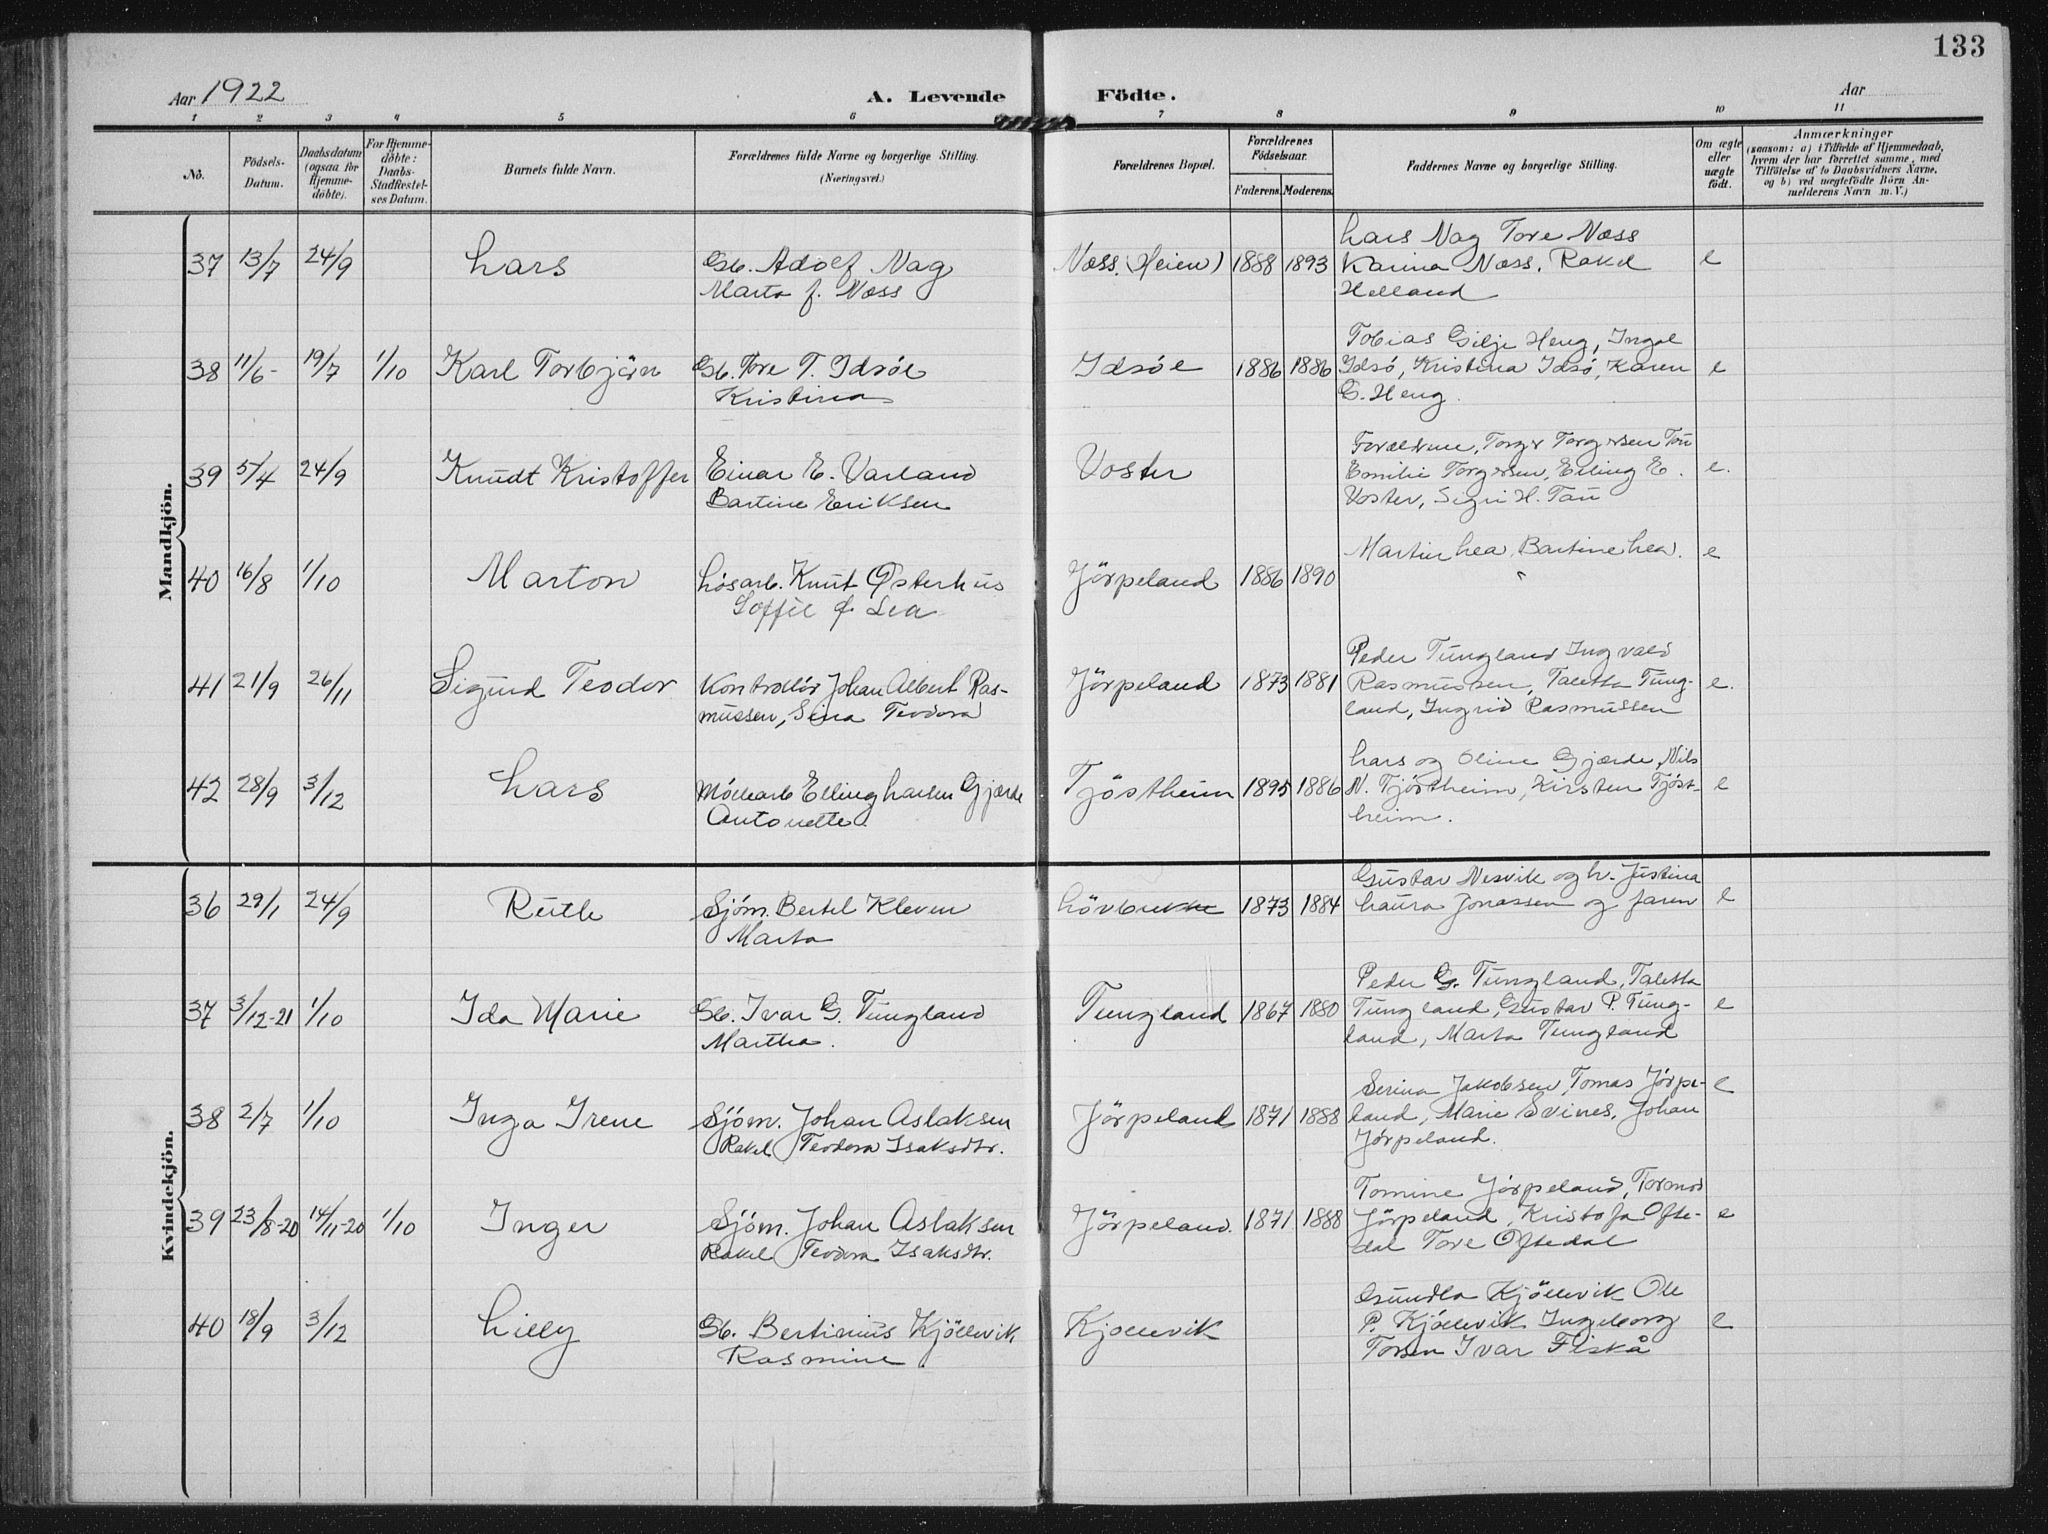 133
Aar 1922 A. Levende Födte. Aar
1 2 3 4 5 6 7 8 9 10 11
No. Födsels-Datum. Daabsdatum (ogsaa for Hjemmedöbte). For Hjemmedöbte: Daabs-Stadfestelses Datum. Barnets fulde Navn. Forældrenes fulde Navne og borgerlige Stilling. (Næringsvei.) Forældrenes Bopæl. Forældrenes Födselsaar. Faderens. Moderens. Faddernes Navne og borgerlige Stilling. Om ægte eller uægte födt. Anmærkninger (saasom: a) i Tilfælde af Hjemmedaab, hvem der har forrettet samme, med Tilföielse af to Daabsvidners Navne, og b) ved uægtefödte Börn Anmelderens Navn m. V.)
Mandkjön.
Lars Nag Tore Næss
37 13/7 24/9 Lars Gb. Adolf Nag Næss. (Heien) 1888 1893 Karina Næss. Rakel e
Marta f. Næss Helland
Tobias Gilje Heng, Ingel
38 11/6- 19/7 1/10 Karl Torbjörn Gb. Tore T. Idsöe Idsöe 1886 1886 Idsö, Kristina Idsö, Karen e
Kristina G. Heng.
Forældrene, Torger Torgersen Tau
39 5/4 24/9 Knudt Kristoffer Einar E. Varland Voster Emilie Torgersen, Elling E. e.
Bartine Eriksen Voster, Sigri H. Tau
Martin Lea, Bartine Lea. e
40 16/8 1/10 Marton Lösarb. Knut Østerhus Jörpeland 1886 1890
Soffie f. Lea
Peder Tungland Ingvald
41 21/9 26/11 Sigurd Teodor Kontrollör Johan Albert Ras- Jörpeland 1873 1881 Rasmussen, Taletta Tung- e.
mussen, Sina Teodora land, Ingrid Rasmussen
Lars og Oline Gjærde, Nils
42 28/9 3/12 Lars Möllearb Elling Larsen Gjærde Tjöstheim 1895 1886 N. Tjöstheim, Kirsten Tjöst- e
Antonette. heim.
Kvindekjön.
Gustav Nesvik og h. Justina
36 29/1 24/9 Ruth Sjöm. Bertel Kleven Lövbrekke 1873 1884 Laura Jonassen og faren e
Marta
Peder G. Tungland, Taletta
37 3/12-21 1/10 Ida Marie Gb. Ivar G. Tungland Tungland 1867 1880 Tungland, Gustav P. Tung- e
Martha. land, Marta Tungland
Serina Jakobsen, Tomas Jörpe- e
38 2/7 1/10 Inga Irene Sjöm. Johan Aslaksen Jörpeland 1871 1888 land, Marie Svines, Johan
Rakel Teodora Isaksdtr. Jörpeland.
Tomine Jörpeland, Tormod
39 23/8-20 14/11-20 1/10 Inger Sjöm. Johan Aslaksen Jörpeland. 1871 1888 Jörpeland, Kristofa Ofte- e
Rakel Teodora Isaksdtr. dal Tore Oftedal
Gundla Kjöllevik Ole
40 18/9 3/12 Lilly Gb. Bertinius Kjöllevik Kjollevik P. Kjöllevik Ingeborg e
Rasmine Torsen Ivar Fiskå